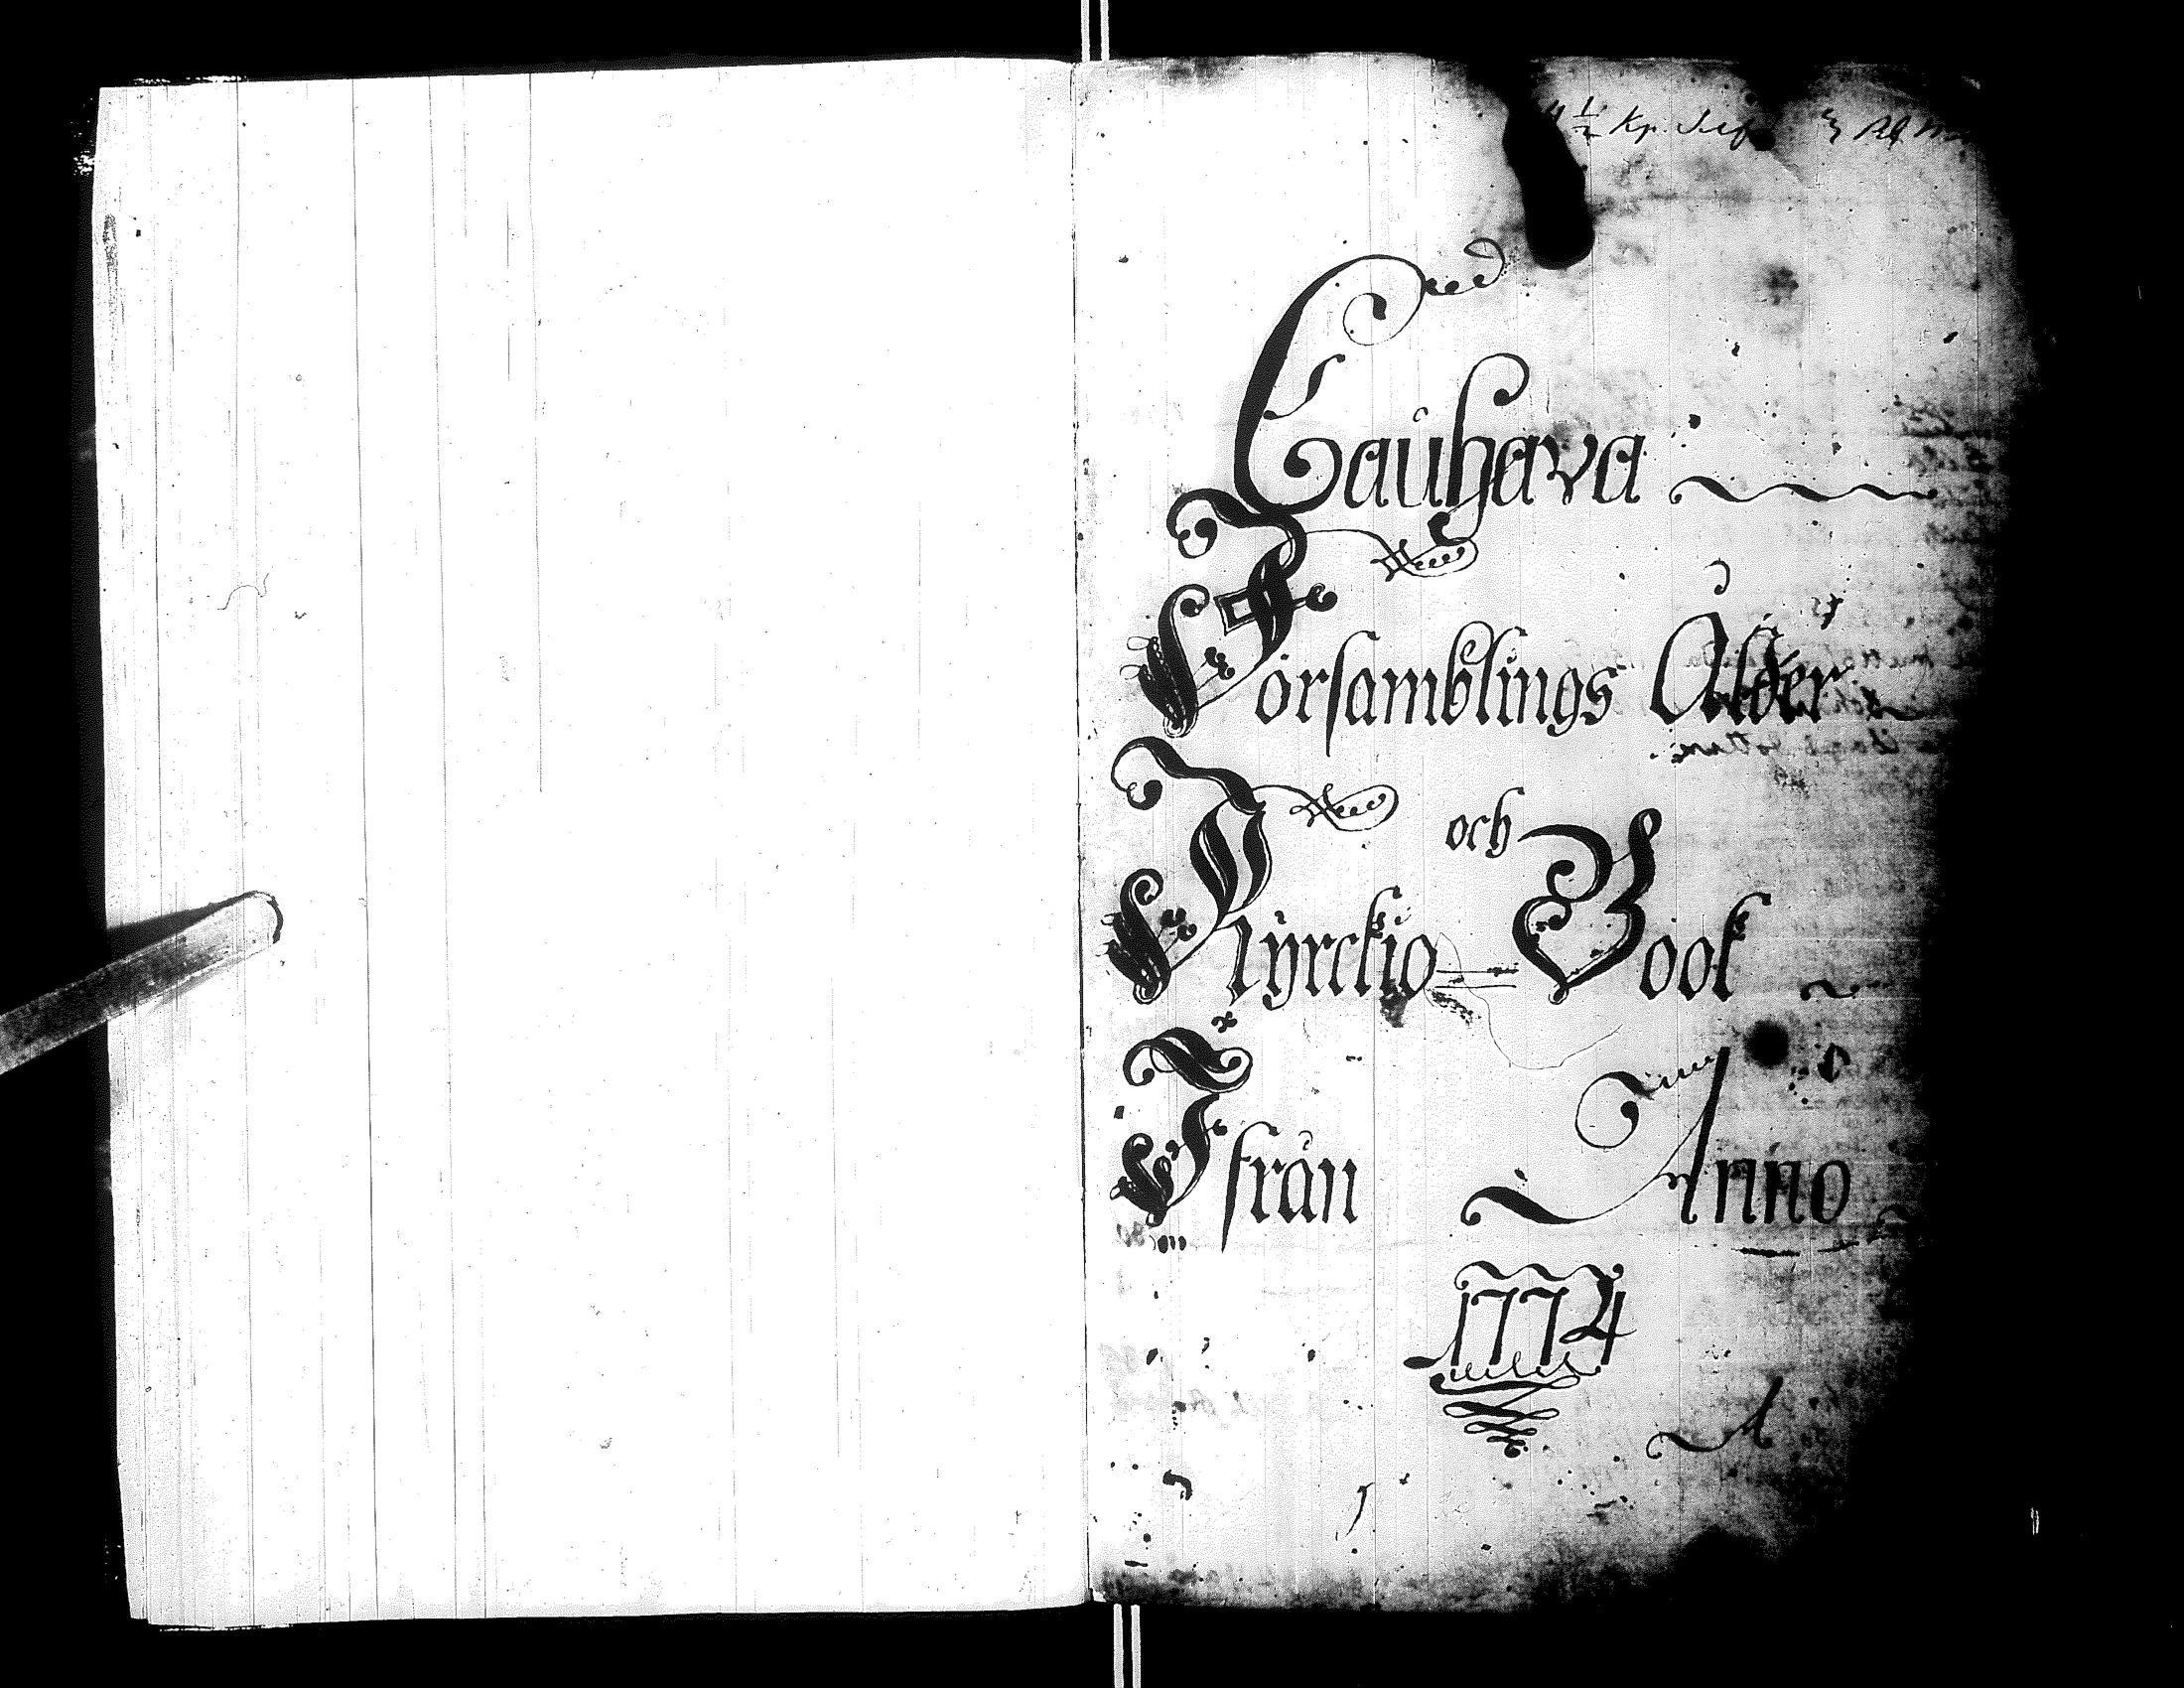 Cauhava
Församblings Ålder
och
Kÿrckio=Book
Ifrån Anno
1774